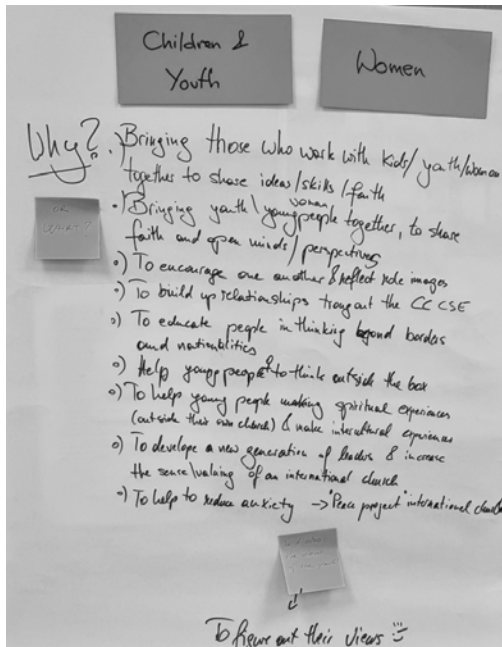 Children &
Youth
Women
Why?
•) Bringing those who work with kids/youth/women
together to share ideas/skills/faith
•) Bringing youth\young people together, to share
women
faith and open minds/perspectives
•) To encourage one another & reflect role images
•) To build up relationships trougout the CC CSE
•) To educate people in thinking beyond borders
and nationalities
•) Help young people to think outside the box
•) To help young people making spiritual experiences
(outside their own church) & make intercultural experiences
•) To develop a new generation of leaders & increase
the sense/valuing of an international church
•) To help to reduce anxiety → "Peace project" international church
OR
WHAT?
To figure out their views